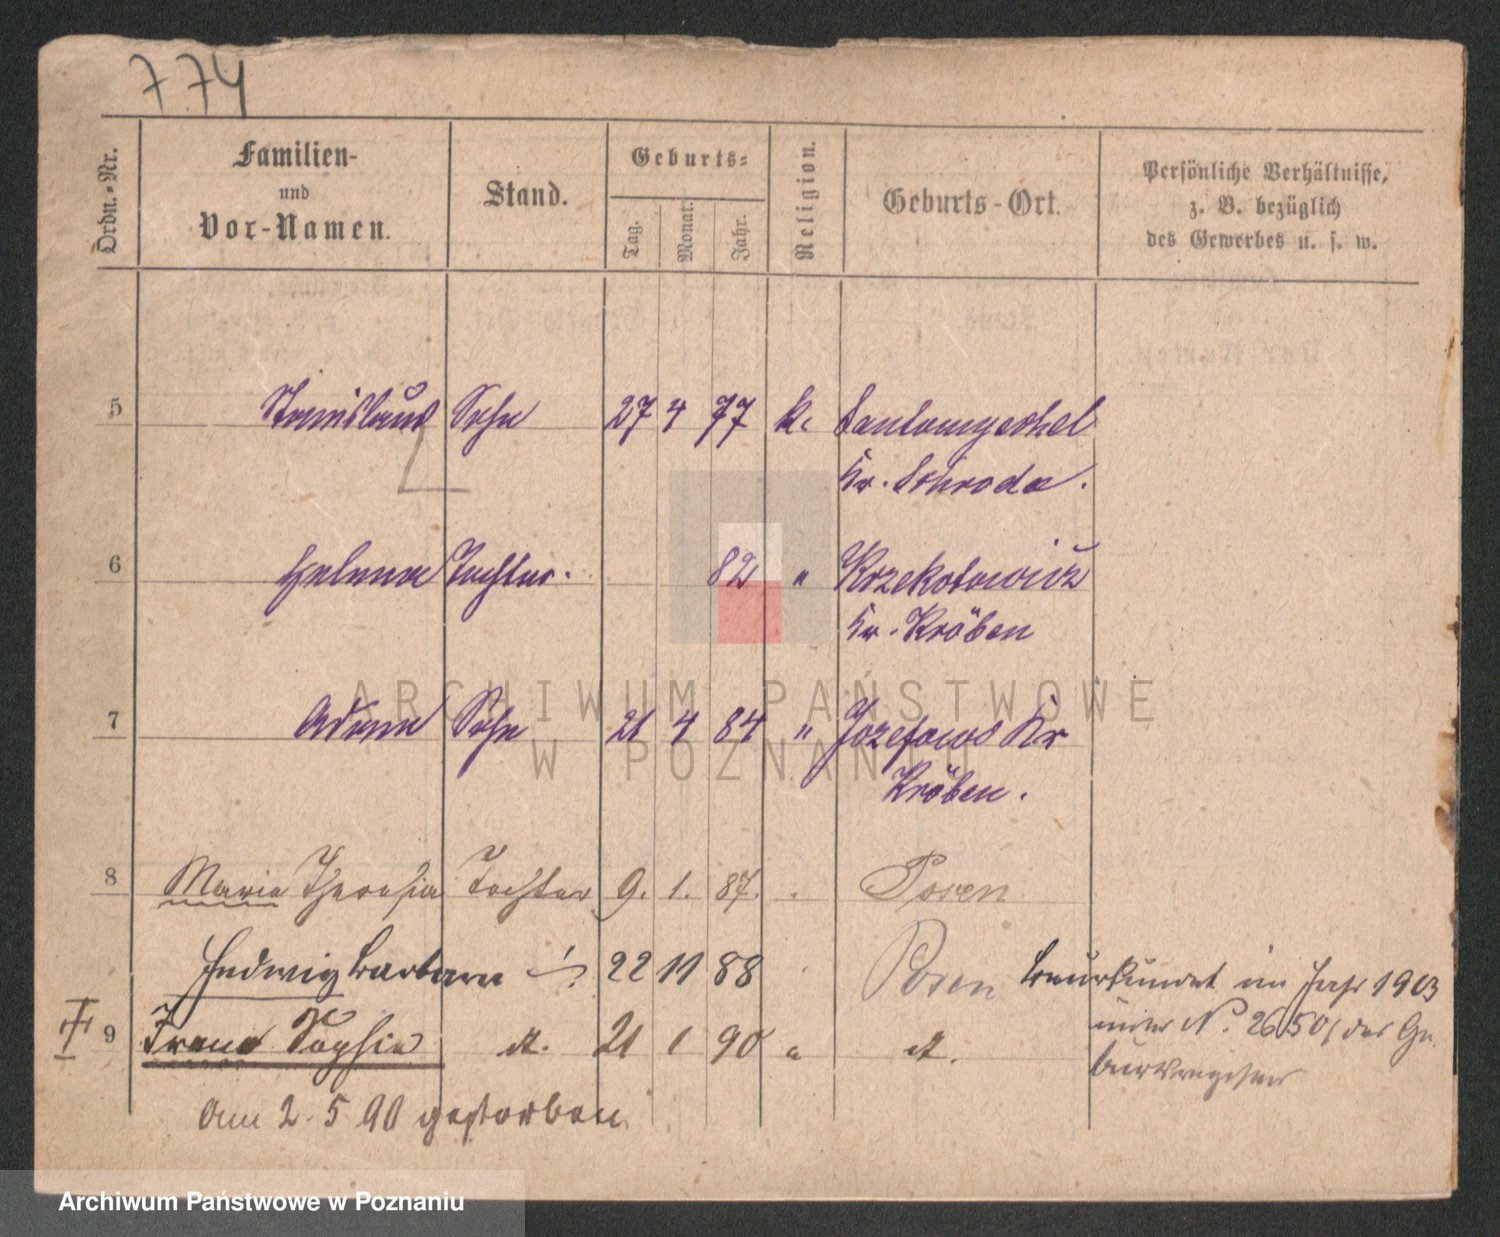 7.74
Ordn.-Nr.
Familien-
und
Vor-Namen.
Stand.
Geburts-
Tag.
Monat.
Jahr.
Religion.
Geburts-Ort.
Persönliche Verhältnisse,
z. B. bezüglich
des Gewerbes u. s. w.
5 Stanislaus Sohn 27 4 77 k. Santomyschel
Kr. Schroda.
6 Helena Tochter. 82 " Krzekotowicz
Kr. Kröben
7 Adam Sohn 21 4 84 " Jozefowo Kr
Kröben.
8 Maria Theresia Tochter 9. 1. 87. Posen
Hedwig Barbara 22 11 88 Posen beurkundet im Jahr 1903
unter N. 2650/ des Ge-
burtsregisters
9 Sophie dt. 21 1 90 " dt.
am 2. 5 90 gestorben
ARCHIWUM PAŃSTWOWE
W POZNANIU
Archiwum Państwowe w Poznaniu